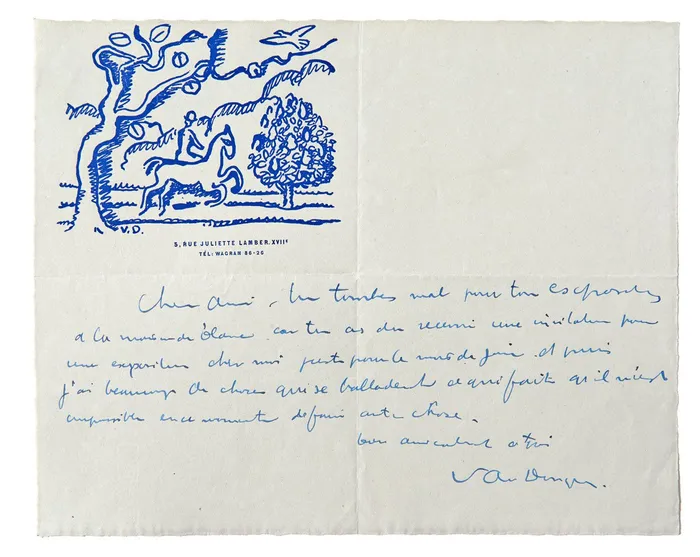 V.D.
5, RUE JULIETTE LAMBER. XVIIe
TÉL: WAGRAM 80-20
Cher ami, tu tombes mal pour ton exposition
à la maison de blanc. car tu as du recevoir une invitation pour
une exposition chez moi juste pour le mois de juin. et puis
j'ai beaucoup de choses qui se balladent ce qui fait qu'il m'est
impossible en ce moment de faire autre chose.
bien amicalement à toi
Van Dongen.